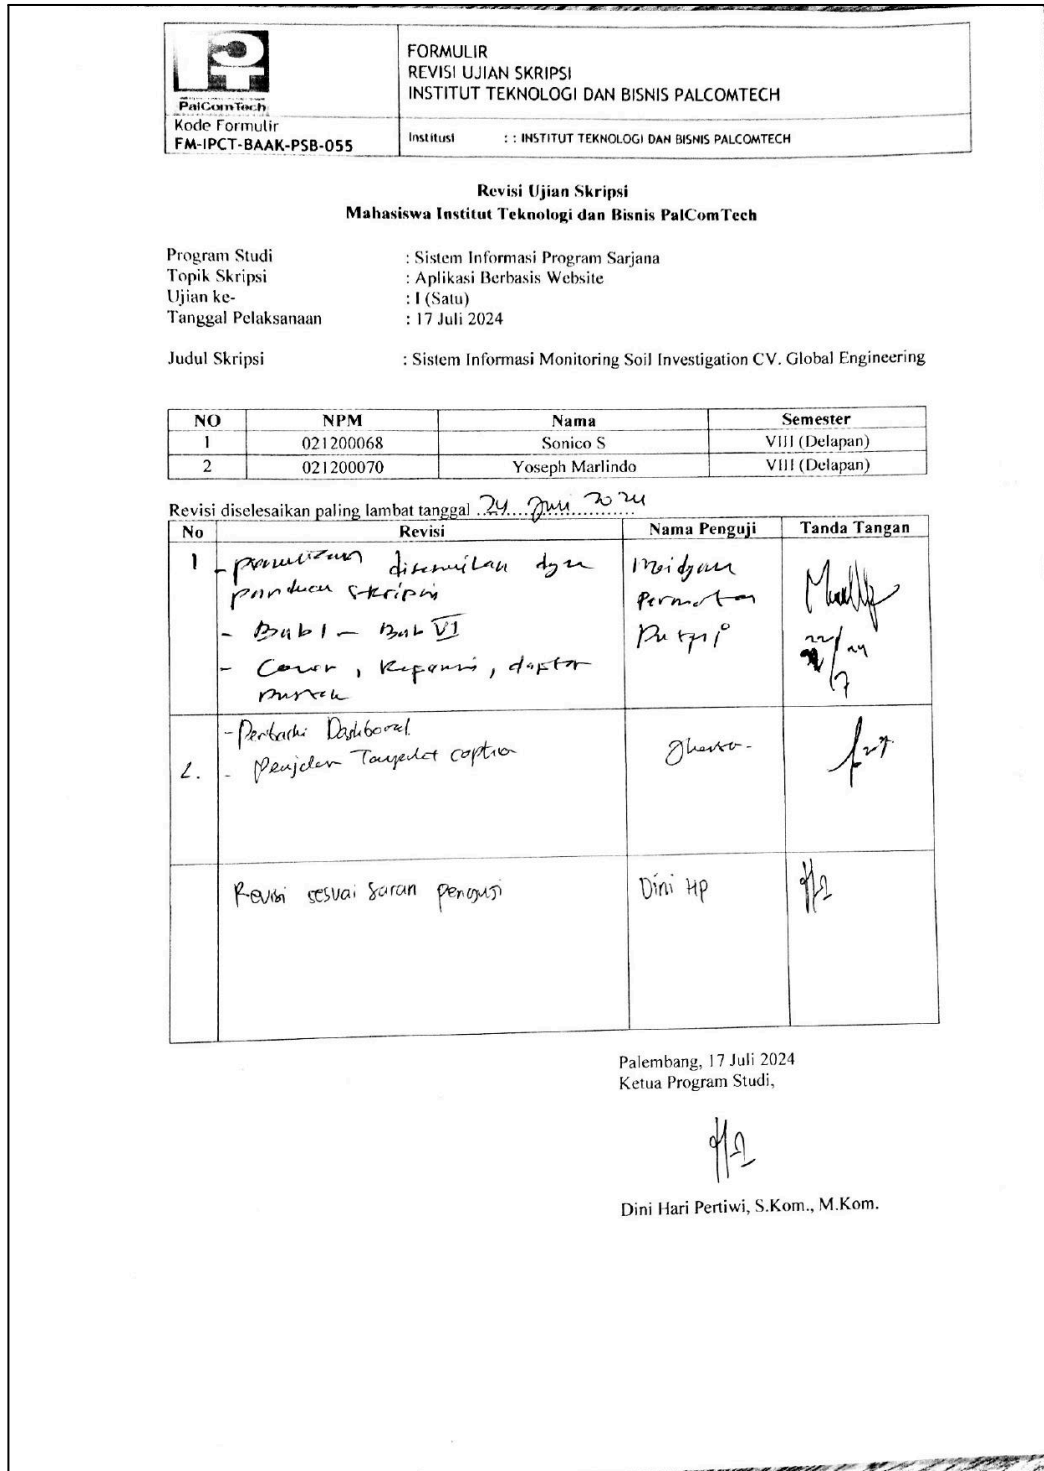 PalComTech
Kode Formulir
FM-IPCT-BAAK-PSB-055
FORMULIR
REVISI UJIAN SKRIPSI
INSTITUT TEKNOLOGI DAN BISNIS PALCOMTECH
Institusi : : INSTITUT TEKNOLOGI DAN BISNIS PALCOMTECH
Revisi Ujian Skripsi
Mahasiswa Institut Teknologi dan Bisnis PalComTech
Program Studi : Sistem Informasi Program Sarjana
Topik Skripsi : Aplikasi Berbasis Website
Ujian ke- : I (Satu)
Tanggal Pelaksanaan : 17 Juli 2024
Judul Skripsi : Sistem Informasi Monitoring Soil Investigation CV. Global Engineering
NO NPM Nama Semester
1 021200068 Sonico S VIII (Delapan)
2 021200070 Yoseph Marlindo VIII (Delapan)
Revisi diselesaikan paling lambat tanggal 24 Juli 2024
No Revisi Nama Penguji Tanda Tangan
1 - penulisan disesuaikan dgn
panduan skripsi Permatan
- Bab 1 - Bab VI
- Cover, , daftar
pustaka
- Perbaiki Dashboard
2. -
Revisi sesuai saran penguji Dini HP
Palembang, 17 Juli 2024
Ketua Program Studi,
Dini Hari Pertiwi, S.Kom., M.Kom.